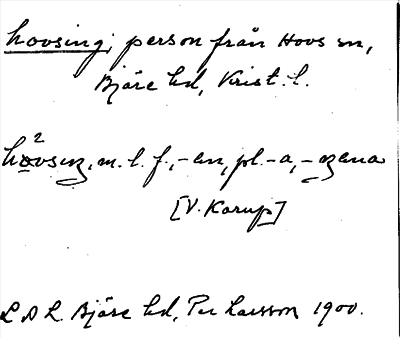 hovsing; person från Hovs sn,
Bjäre hd, Krist. l.
m. l. f., -en, pl. -a,
[V. Karup]
L D L. Bjäre hd, Per Larsson 1900.